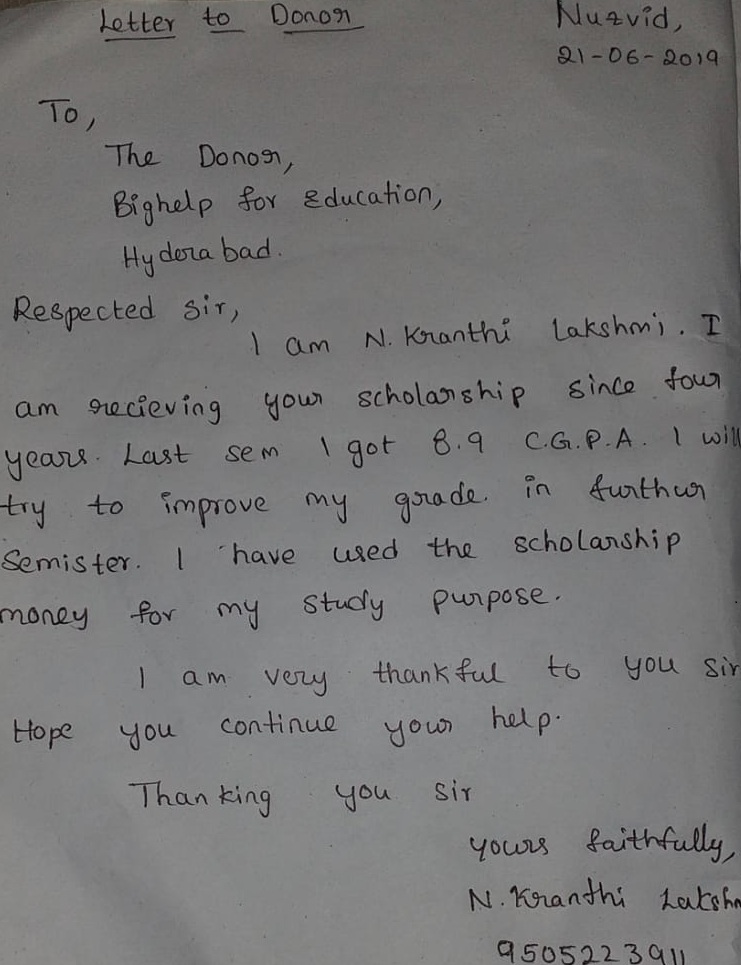 Letter to Donor
Nuzvid,
21-06-2019
To,
The Donor,
Bighelp for Education,
Hyderabad.
Respected Sir,
I am N. Kranthi Lakshmi. I
am recieving your scholarship since four
years. Last sem I got 8.9 C.G.P.A. I will
try to improve my grade. in furthur
Semister. I have used the scholarship
money for my study purpose.
I am very thankful to you Sir
Hope you continue your help.
Thanking you sir
yours faithfully,
N. Kranthi Lakshm
9505223911